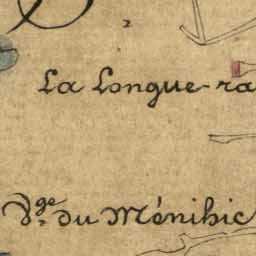 La Longue-ra
Vge du Ménihic